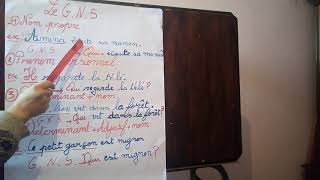 Le G.N.S
① Nom propre
ex: Amina écoute sa maman.
G.N.S Qui écoute sa maman?
② Pronom personnel:
ex: Il regarde la télé.
regarde la télé?
③ Déterminant + nom
vit dans la forêt.
G.N.S. Qui vit dans la forêt?
Déterminant + Adjectif + nom
Le petit garçon est mignon
G.N.S. Qui est mignon?